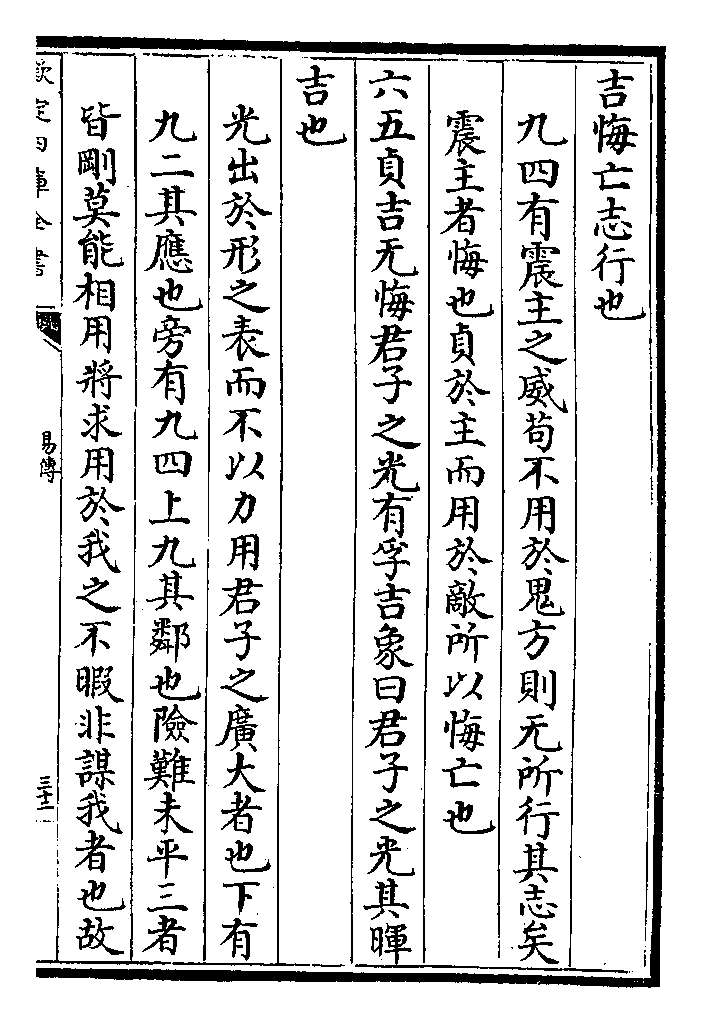 吉悔亡志行也
九四有震主之威苟不用於鬼方則无所行其志矣
震主者悔也貞於主而用於敵所以悔亡也
六五貞吉无悔君子之光有孚吉象曰君子之光其暉
吉也
光出於形之表而不以力用君子之廣大者也下有
九二其應也旁有九四上九其鄰也險難未平三者
皆剛莫能相用將求用於我之不暇非謀我者也故
欽定四庫全書
易傳
三十二